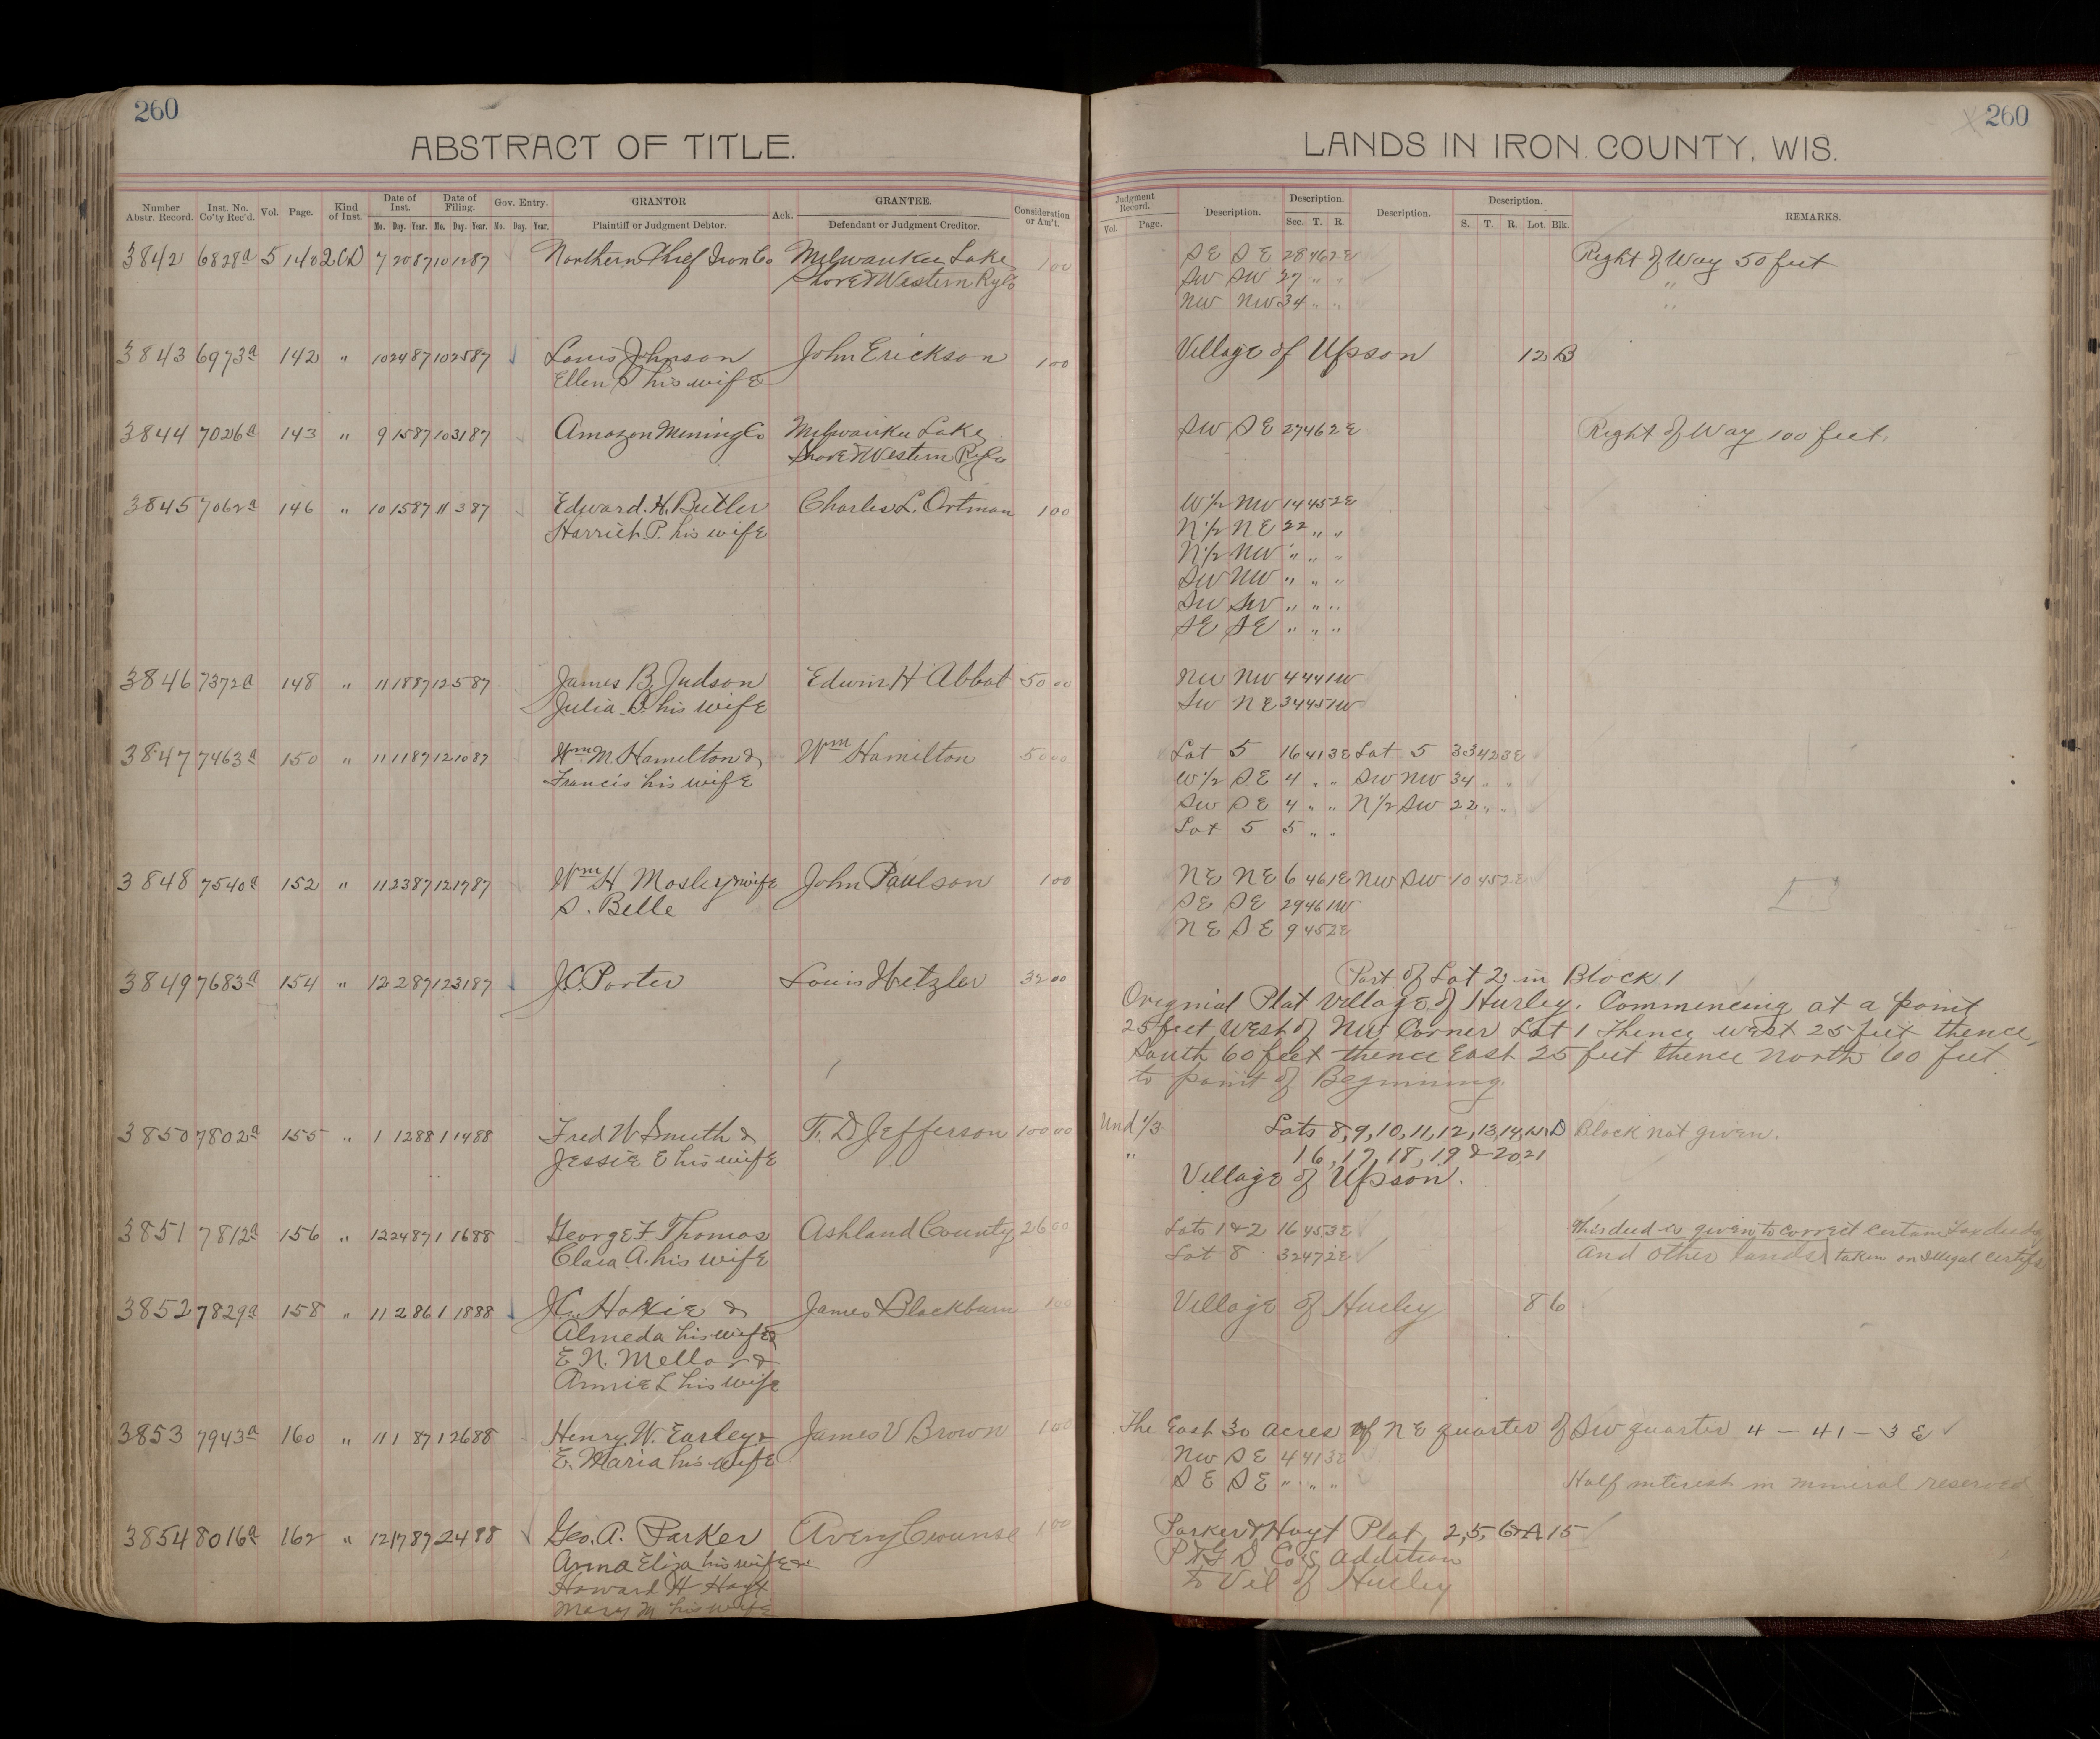 260
ABSTRACT OF TITLE.
Number Abstr. Record. Inst. No. Co'ty Rec'd. Vol. Page. Kind of Inst. Date of Inst. Date of Filing. Gov. Entry. GRANTOR Ack. GRANTEE. Consideration or Am't.
Mo. Day. Year. Mo. Day. Year. Mo. Day. Year. Plaintiff or Judgment Debtor. Defendant or Judgment Creditor.
3842 6828a 5 140 2CD 7 20 87 10 12 87 Northern Chief Iron Co Milwaukee Lake 100
Shore & Western Ry Co
3843 6973a 142 " 10 24 87 10 25 87 Louis Johnson John Erickson 100
Ellen S his wife
3844 7026a 143 " 9 15 87 10 31 87 Amazon Mining Co Milwaukee Lake
Shore & Western Ry Co
3845 7062a 146 " 10 15 87 11 3 87 Edward. H. Butler Charles L. Ortman 100
Harriet P. his wife
3846 7372a 148 " 11 18 87 12 5 87 James B Judson Edwin H Abbot 50 00
Julia S. his wife
3847 7463a 150 " 11 11 87 12 10 87 Wm M. Hamilton & Wm Hamilton 50 00
Francis his wife
3848 7540a 152 " 11 23 87 12 17 87 Wm H Mosley & wife John Paulson 100
S. Belle
3849 7683a 154 " 12 2 87 12 31 87 J.C. Porter Louis Hetzler 32 00
3850 7802a 155 " 1 12 88 1 14 88 Fred W Smith & F. D Jefferson 100 00
Jessie E his wife
3851 7812a 156 " 12 24 87 1 16 88 George F Thomas Ashland County 26 00
Clara A. his wife
3852 7829a 158 " 11 2 86 1 18 88 J C. Hoxie & James Blackburn 100
Almeda his wife &
E N. Mellor &
Annie L his wife
3853 7943a 160 " 11 1 87 1 26 88 Henry W. Earley & James V Brown 100
E. Maria his wife
3854 8016a 162 " 12 17 87 2 4 88 Geo. A. Parker Avery Counse 100
Anna Eliza his wife &
Howard H Hoyt
Mary M his wife
260
LANDS IN IRON COUNTY, WIS.
Judgment Record. Description. Description. Description. Description. REMARKS.
Vol. Page. Sec. T. R. S. T. R. Lot. Blk.
SE SE 28 46 2E Right of Way 50 feet
SW SW 27 " " "
NW NW 34 " " "
Village of Upson 12 B
SW SE 27 46 2E Right of Way 100 feet.
W 1/2 NW 14 45 2E
N 1/2 NE 22 " "
N 1/2 NW " " "
SW NW " " "
SW SW " " "
SE SE " " "
NW NW 4 44 1W
SW NE 34 45 1W
Lot 5 16 41 3E Lot 5 33 42 3E
W 1/2 SE 4 " " SW NW 34 " "
SW SE 4 " " N 1/2 SW 22 " "
Lot 5 5 " "
NE NE 6 46 1E NW SW 10 45 2E
SE SE 29 46 1W
NE SE 9 45 2E
Part of Lot 2 in Block 1
Orignial Plat Village of Hurley. Commencing at a point
25 feet West of NW Corner Lot 1 Thence west 25 feet thence
South 60 feet thence East 25 feet thence North 60 feet
to point of Beginning.
Und 1/3 Lots 8, 9, 10, 11, 12, 13, 14, 15 D Block not given.
" 16, 17, 18, 19 & 20, 21
Village of Upson.
Lots 1 & 2 16 45 3E This deed is given to correct certain Tax deeds
Lot 8 32 47 2E and other lands taken on Illegal certifs
Village of Hurley 8 6
The East 30 acres of NE quarter of SW quarter 4 - 41 - 3 E
NW SE 4 41 3E
SE SE " " " Half interest in mineral reserved
Parker & Hoyt Plat 2, 5, 6 & A 15
Co's Addition
to Vil of Hurley